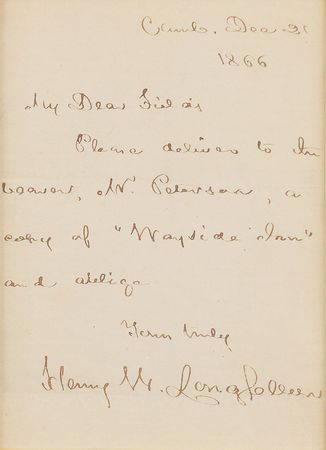 Camb. Dec 21
1866
My Dear Fields
Please deliver to the
bearer, Mr. Peterson, a
copy of "Wayside Inn"
and oblige
Yours truly
Henry W. Longfellow